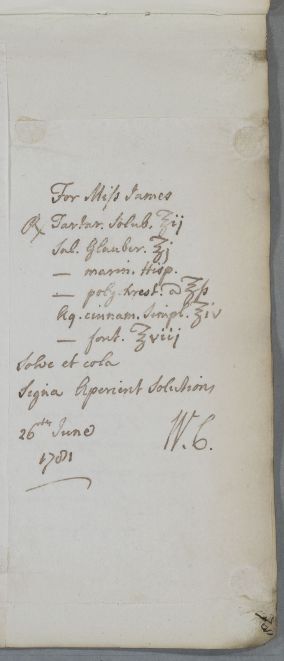 For Miſs James
℞ Tartar. Solub. ℥ij
Sal. Glauber. ℥j
— marin. Hisp.
— polychrest. a ℥ſs
Aq. cinnam. Simpl. ℥iv
— font. ℥viij
Solve et cola
Signa Aperient Solution
26th June W. C.
1781